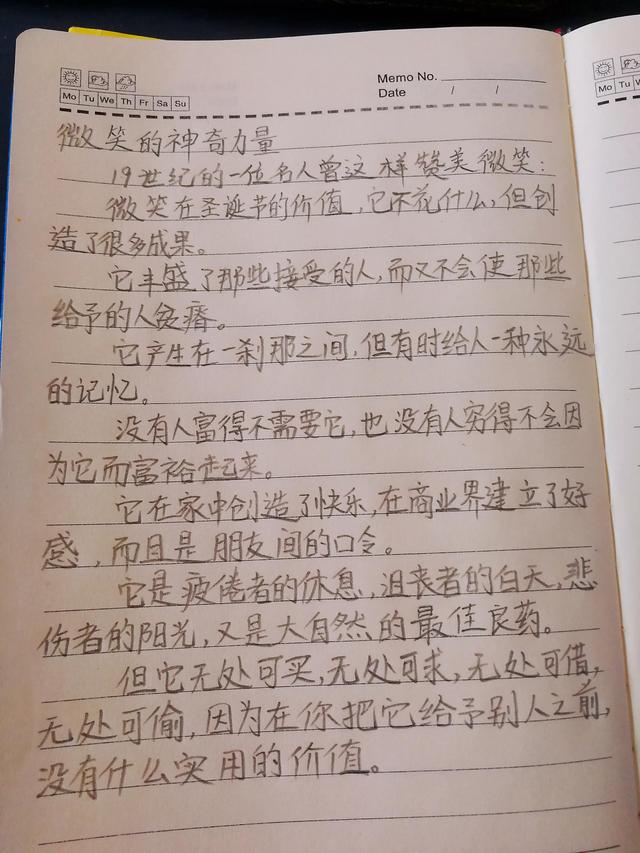 Memo No.
Mo Tu We Th Fr Sa Su
Date / /
微笑的神奇力量
19世纪的一位名人曾这样赞美微笑:
微笑在圣诞节的价值,它不花什么,但创
造了很多成果。
它丰盛了那些接受的人,而又不会使那些
给予的人贫瘠。
它产生在一刹那之间,但有时给人一种永远
的记忆。
没有人富得不需要它,也没有人穷得不会因
为它而富裕起来。
它在家中创造了快乐,在商业界建立了好
感,而且是朋友间的口令。
它是疲倦者的休息,沮丧者的白天,悲
伤者的阳光,又是大自然的最佳良药。
但它无处可买,无处可求,无处可借,
无处可偷,因为在你把它给予别人之前,
没有什么实用的价值。
Mo Tu